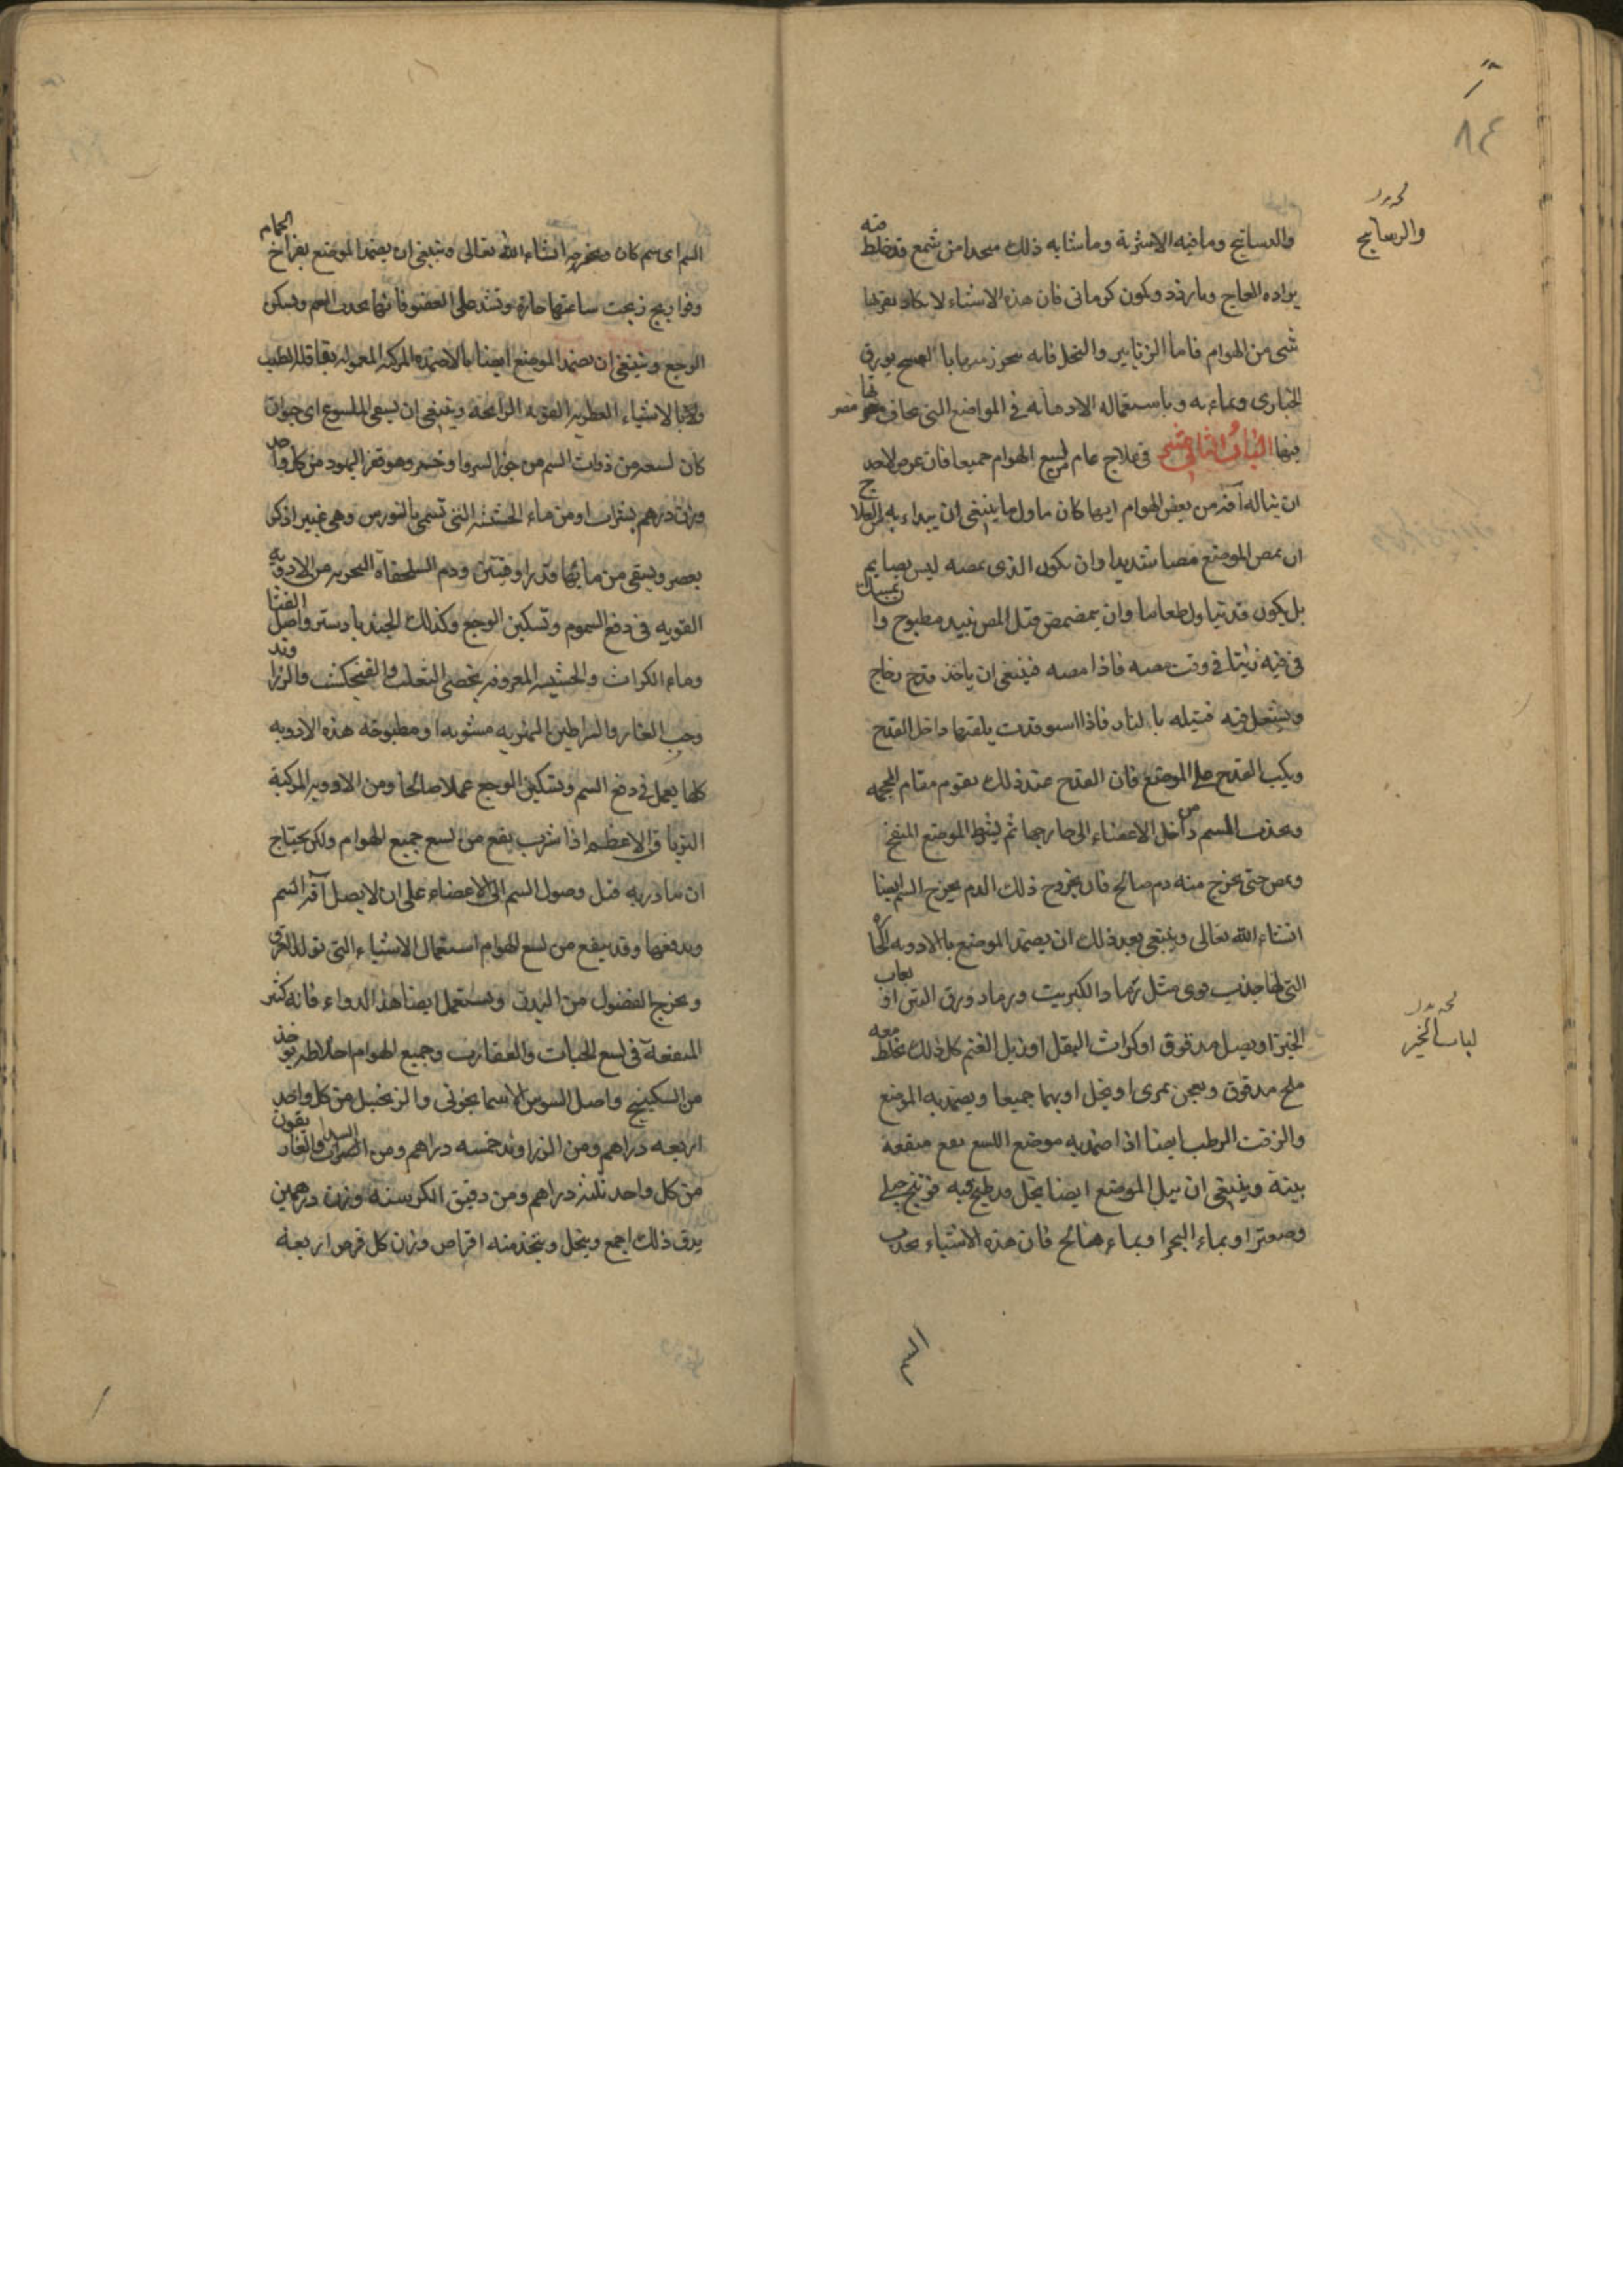 ٨٤
والدساتيج وما فيه الاشربة وما شابه ذلك متخذا من شمع قد خلط فيه
براده العاج وبارزد وكمون كرماني فان هذه الاشياء لا يكاد يقربها
شي من الهوام فاما الزنابير والنحل فانه يتحرز منها بالتمسح بورق
الخبازى وبماءيه وباستعماله الادهانه في المواضع التي يخاف
فيها الباب الثاني عشر في علاج عام للسع الهوام جميعا فان عرض لاحد
ان يناله آفة من بعض الهوام ايها كان فاول ما ينبغي ان يبداء به من العلاج
ان يمص الموضع مصا شديدا وان يكون الذي يمصه ليس بصايم
بل يكون قد تناول طعاما وان يمضمض قبل المص بنبيد مطبوخ وا يمسك
في فيه زيتا في وقت مصه فاذا مصه فينبغي ان ياخذ قدح زجاج
ويشعل فيه فتيله بالنار فاذا استوقدت يلقيها داخل القدح
ويكب القدح على الموضع فان القدح عند ذلك يقوم مقام المحجمه
ويجذب السم من داخل الاعضاء الى خارجها ثم يشرط الموضع المنتفخ
ويمص حتى يخرج منه دم صالح فان بخروج ذلك الدم يخرج السم ايضا
انشاء الله تعالى وينبغي بعد ذلك ان يضمد الموضع بالادويه الحا
التي لها جذب قوى مثل رماد الكبريت ورماد ورق التين او
الخبز او بصل مدقوق او كراث البقل او زبل الغنم كل ذلك يخلط معه
ملح مدقوق ويعجن بمرى او بخل او بهما جميعا ويضمد به الموضع
والزفت الرطب ايضا اذا ضمد به موضع اللسع نفع منفعه
بينة وينبغي ان يبل الموضع ايضا بخل قد طبخ فيه فوتنج جبلي
وصعتر او بماء البحر او بماء مالح فان هذه الاشياء يجذب
السم اى سم كان ويخرجه انشاء الله تعالى وينبغي ان يضمد الموضع بفراخ الحمام
وفراريج ذبحت ساعتها حارة وتشد على العضو فانها يجذب السم ويسكن
الوجع وينبغي ان يضمد الموضع ايضا بالاضمده المركبه المعموله
ولا بالاشياء العطريه القويه الرائحة وينبغي ان يسقى الملسوع اى حيوان
كان لسعه من ذوات السم من جوز السرو
وزن درهم بشراب او من ماء الحشيشه التي تسمى
يعصر ويسقى من مائها قدر اوقيتين ودم السلحفاة البحريه من الادويه
القويه في دفع السموم وتسكين الوجع وكذلك الجندبادستر واصل
وماء الكراث والحشيشه المعروفه بخصى الثعلب والفنجنكشت والزراوند
وحب الغار والسراطين النهريه مشويه او مطبوخة هذه الادويه
كلها يعمل في دفع السم وتسكين الوجع عملا صالحا ومن الادويه المركبة
الترياق الاعظم اذا شرب ينفع من لسع جميع الهوام ولكن يحتاج
ان يبادر به قبل وصول السم الى الاعضاء على ان لا يصل آفة السم
ويدفعها وقد ينفع من لسع الهوام استعمال الاشياء التي تولد العرق
ويخرج الفضول من البدن ويستعمل ايضا هذا الدواء فانه كثير
المنفعة في لسع الحيات والعقارب وجميع الهوام اخلاطه يوخذ
من السكبينج واصل السوسن الاسمانجوني والزنجبيل من كل واحد
اربعه دراهم ومن الزراوند خمسه دراهم ومن السداب والغار
من كل واحد ثلثه دراهم ومن دقيق الكرسنه وزن درهمين
يدق ذلك اجمع وينخل ويتخذ منه اقراص وزن كل قرص اربعة